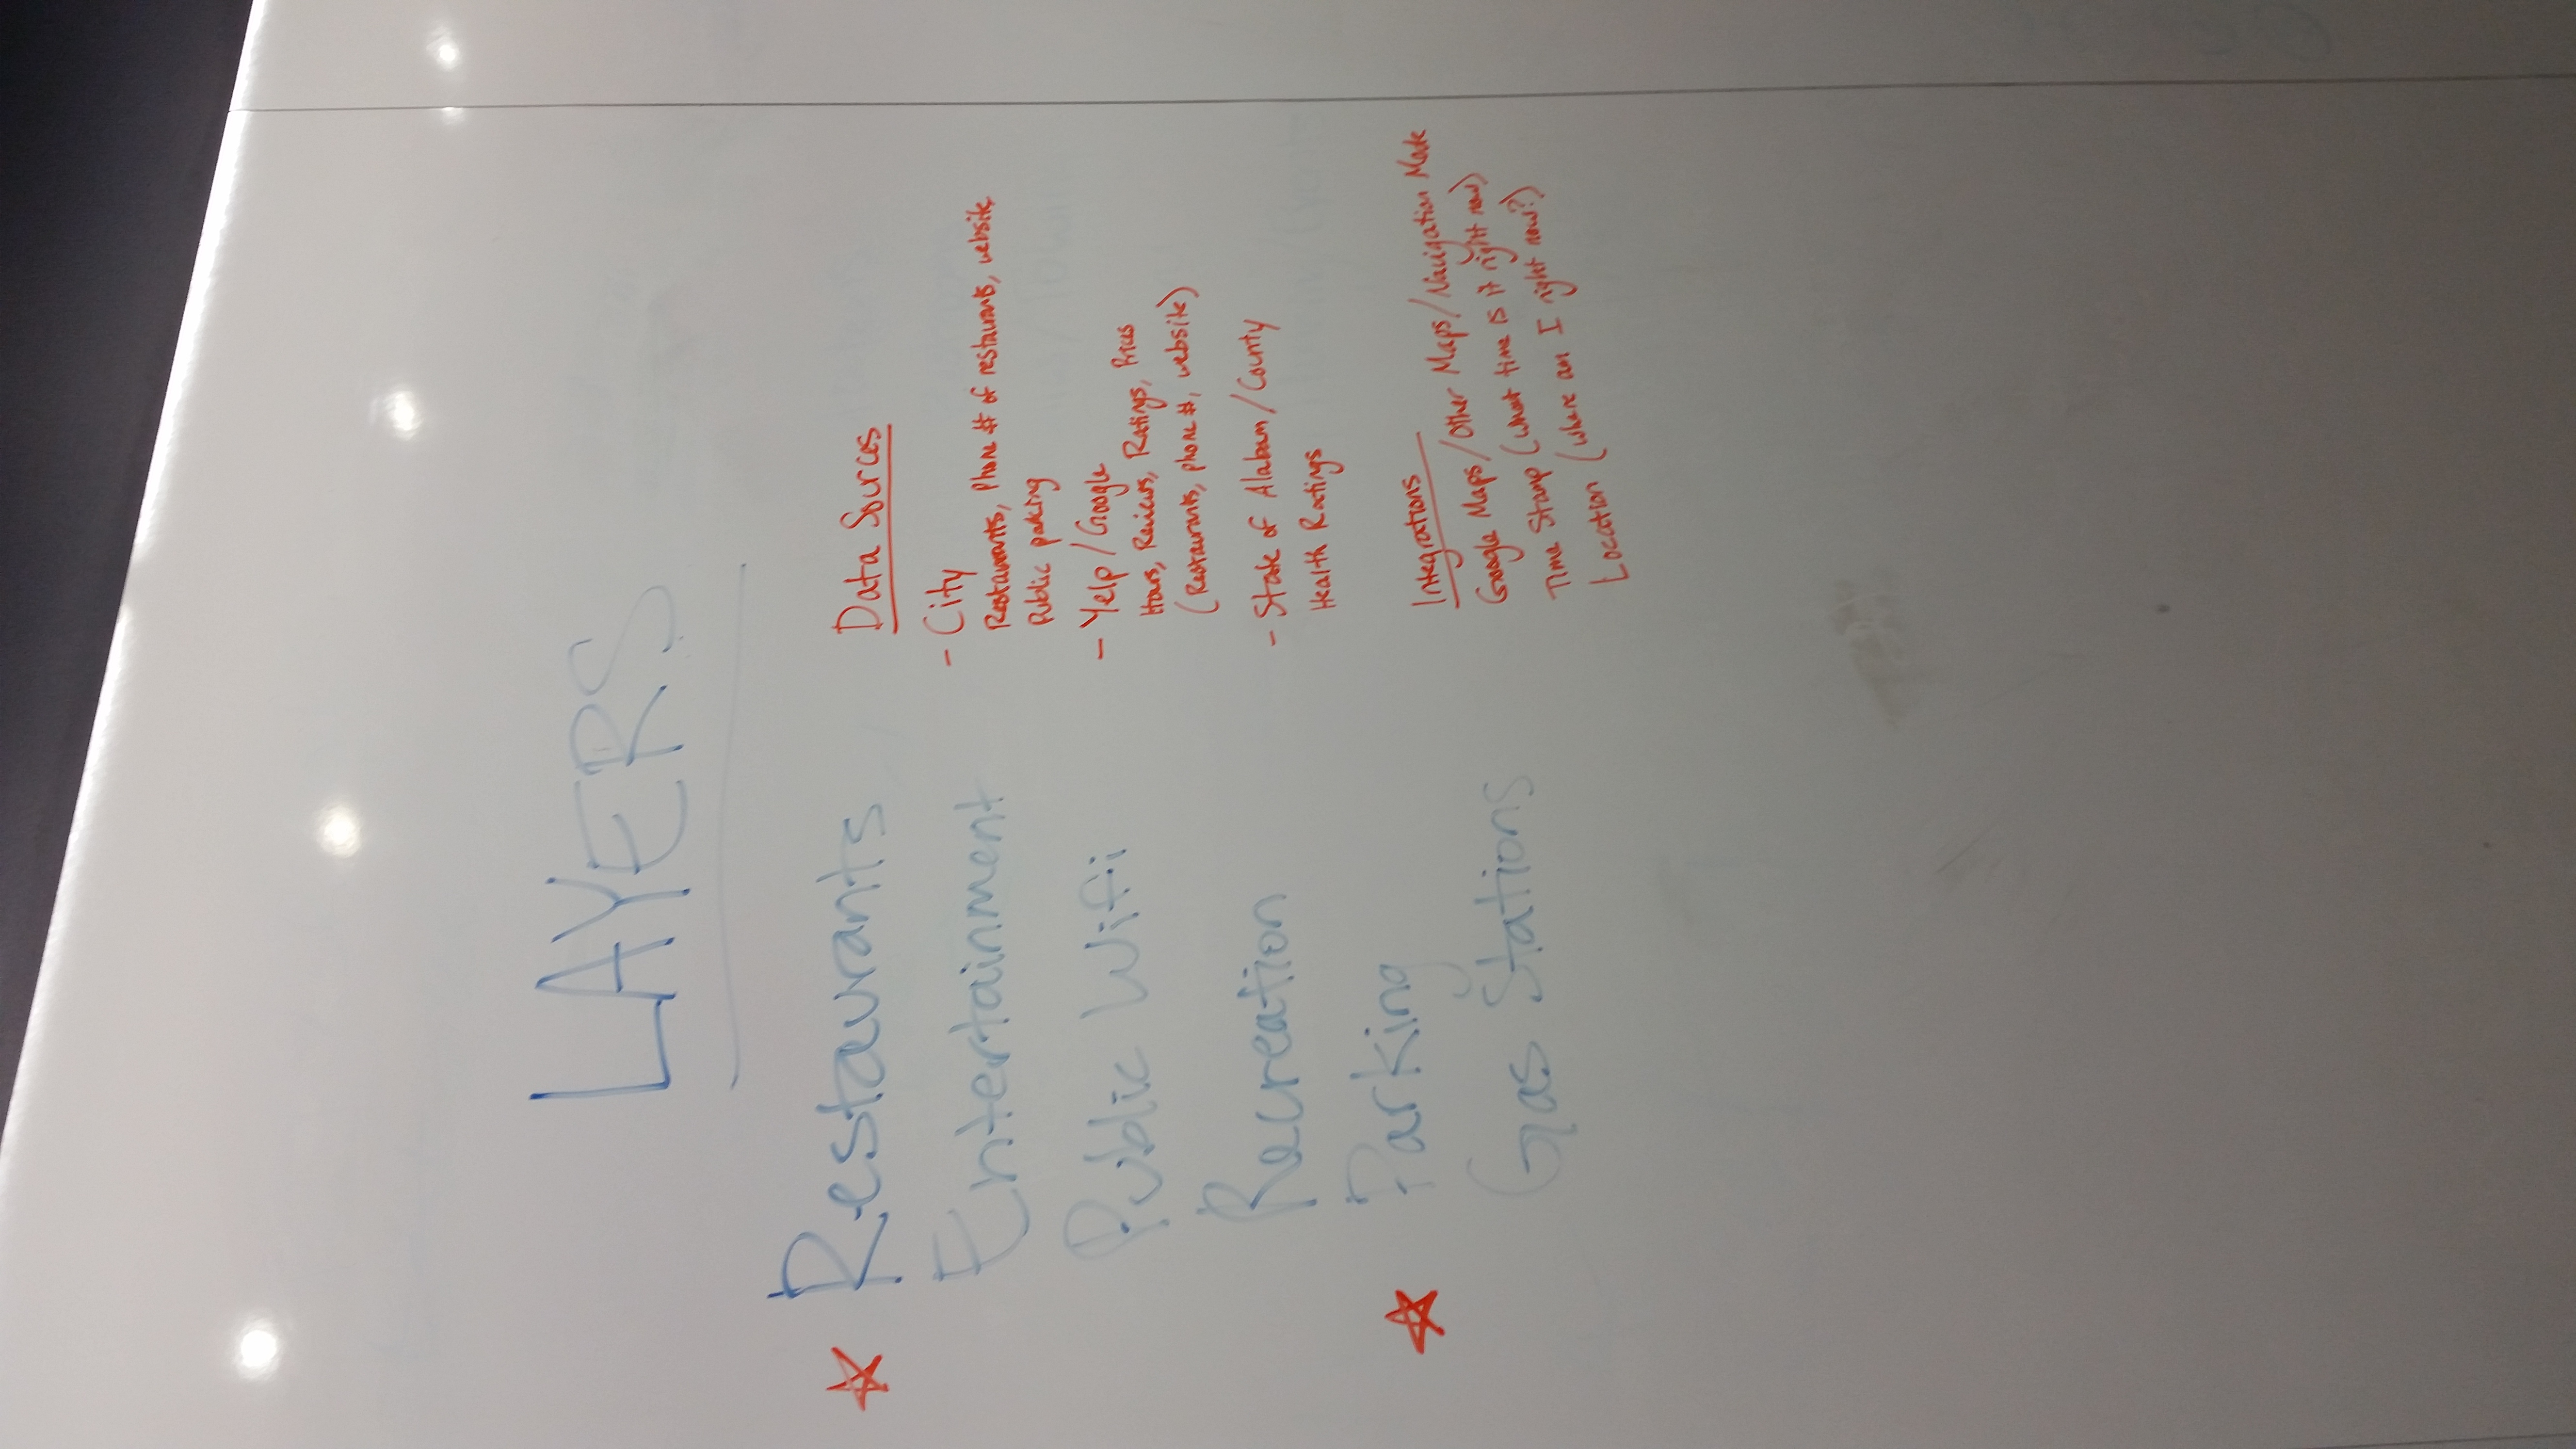 LAYERS
Restaurants
Entertainment
Public Wifi
Recreation
Parking
Gas Stations
Data Sources
- City
Restaurants, Phone # of restaurants, website
Public parking
- Yelp / Google
Hours, Reviews, Ratings, Prices
(Restaurants, phone #, website)
- State of Alabam / County
Health Ratings
Integrations
Google Maps / Other Maps / Navigation Mode
Time Stamp (what time is it right now)
Location (where am I right now?)